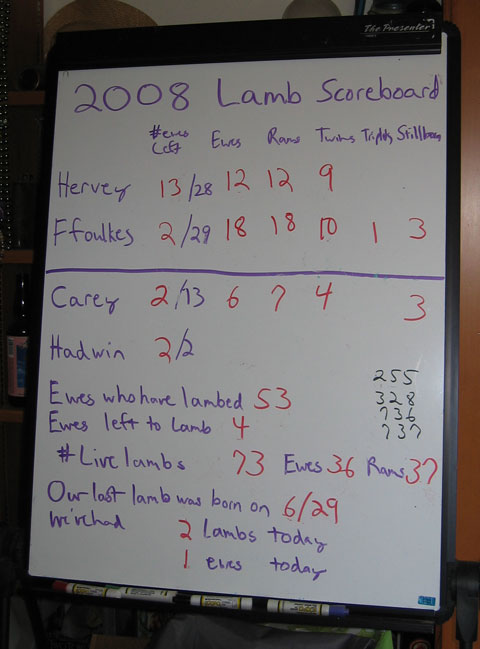 The Presenter
2008 Lamb Scoreboard
#ewes left Ewes Rams Twins Triplets Stillborn
Hervey 13/28 12 12 9
Ffoulkes 2/29 18 18 10 1 3
Carey 2/13 6 7 4 3
Hadwin 2/2
255
328
736
737
Ewes who have lambed 53
Ewes left to lamb 4
#Live lambs 73 Ewes 36 Rams 37
Our last lamb was born on 6/29
We've had 2 Lambs today
1 ewes today